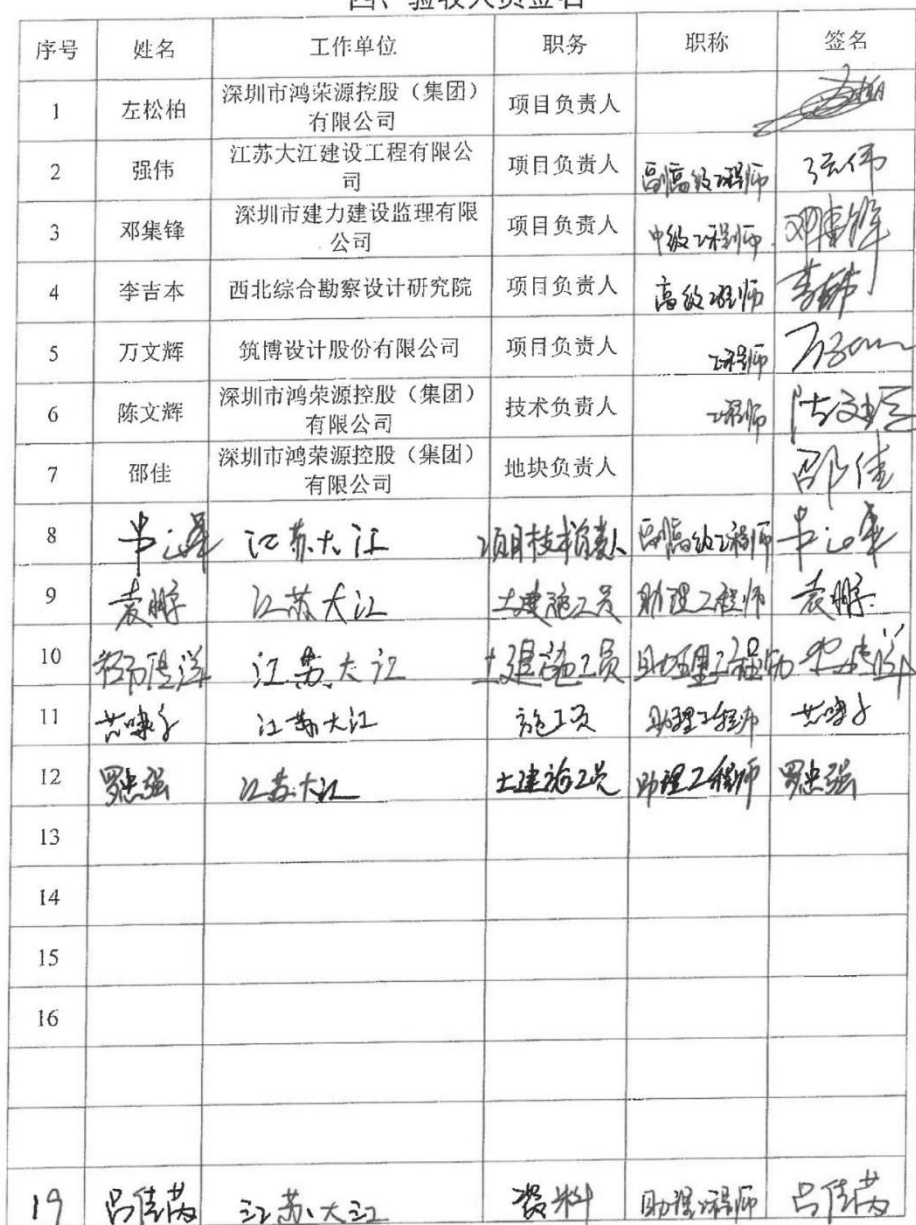 四、验收人员签名
序号 姓名 工作单位 职务 职称 签名
1 左松柏 深圳市鸿荣源控股（集团）有限公司 项目负责人
2 强伟 江苏大江建设工程有限公司 项目负责人 副高级工程师 强伟
3 邓集锋 深圳市建力建设监理有限公司 项目负责人 中级工程师 邓集锋
4 李吉本 西北综合勘察设计研究院 项目负责人 高级工程师
5 万文辉 筑博设计股份有限公司 项目负责人 工程师
6 陈文辉 深圳市鸿荣源控股（集团）有限公司 技术负责人 工程师
7 邵佳 深圳市鸿荣源控股（集团）有限公司 地块负责人 邵佳
8 江苏大江 项目技术负责人 副高级工程师
9 袁鹏 江苏大江 土建施工员 助理工程师 袁鹏
10 江苏大江 土建施工员 助理工程师
11 江苏大江 施工员 助理工程师
12 罗忠强 江苏大江 土建施工员 助理工程师 罗忠强
13
14
15
16
19 江苏大江 资料 助理工程师